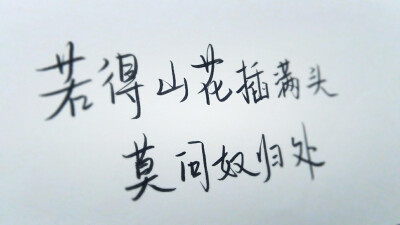 若得山花插满头
莫问奴归处